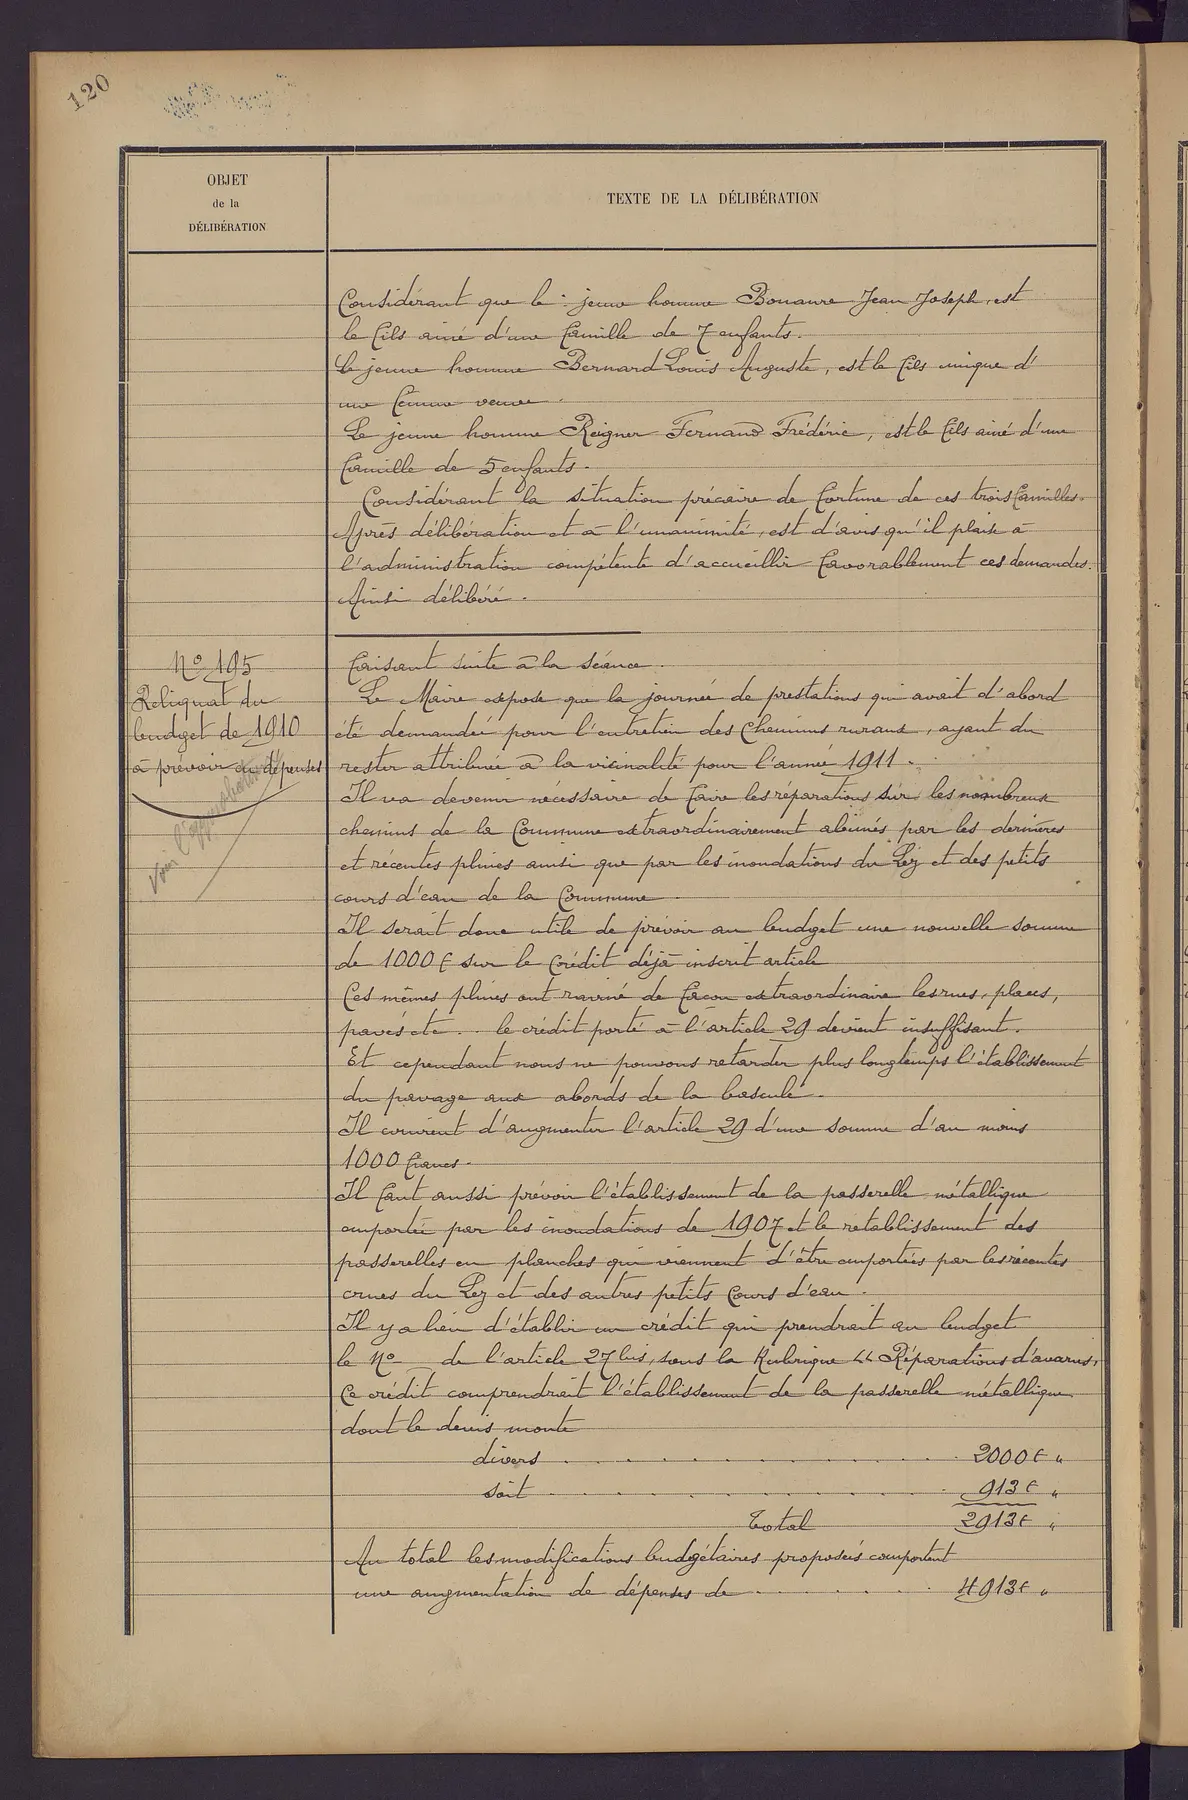 120
OBJET
de la
DÉLIBÉRATION
TEXTE DE LA DÉLIBÉRATION
Considérant que le jeune homme Bonaure Jean Joseph, est
le fils ainé d'une famille de 7 enfants.
Le jeune homme Bernard Louis Auguste, est le fils unique d'
une femme veuve.
Le jeune homme Reigner Fernand Frédéric, est le fils ainé d'une
famille de 5 enfants.
Considérant la situation précaire de fortune de ces trois familles.
Après délibération et à l'unanimité, est d'avis qu'il plaise à
l'administration compétente d'accueillir favorablement ces demandes.
Ainsi délibéré.
No 195
Reliquat du
budget de 1910
à prévoir en dépenses
Voir l'approbation
Faisant suite à la séance.
Le Maire expose que la journée de prestations qui avait d'abord
été demandée pour l'entretien des chemins ruraux, ayant du
rester attribuée à la vicinalité pour l'année 1911.
Il va devenir nécessaire de faire les réparations sur les nombreux
chemins de la Commune extraordinairement abimés par les dernières
et récentes pluies ainsi que par les inondations du Lez et des petits
cours d'eau de la Commune.
Il serait donc utile de prévoir au budget une nouvelle somme
de 1000 f sur le crédit déjà inscrit article
Ces mêmes pluies ont raviné de façon extraordinaire les rues, places,
pavés etc... le crédit porté à l'article 29 devient insuffisant.
Et cependant nous ne pouvons retarder plus longtemps l'établissement
du pavage aux abords de la bascule.
Il convient d'augmenter l'article 29 d'une somme d'au moins
1000 francs.
Il faut aussi prévoir l'établissement de la passerelle métallique
emportée par les inondations de 1907 et le rétablissement des
passerelles en planches qui viennent d'être emportées par les récentes
crues du Lez et des autres petits cours d'eau.
Il y a lieu d'établir un crédit qui prendrait au budget
le No de l'article 27 bis, sous la Rubrique "Réparations d'avaries,
Ce crédit comprendrait l'établissement de la passerelle métallique
dont le devis monte
divers 2000 f "
soit 913 f "
Total 2913 f "
Au total les modifications budgétaires proposées comportent
une augmentation de dépenses de 4913 f "